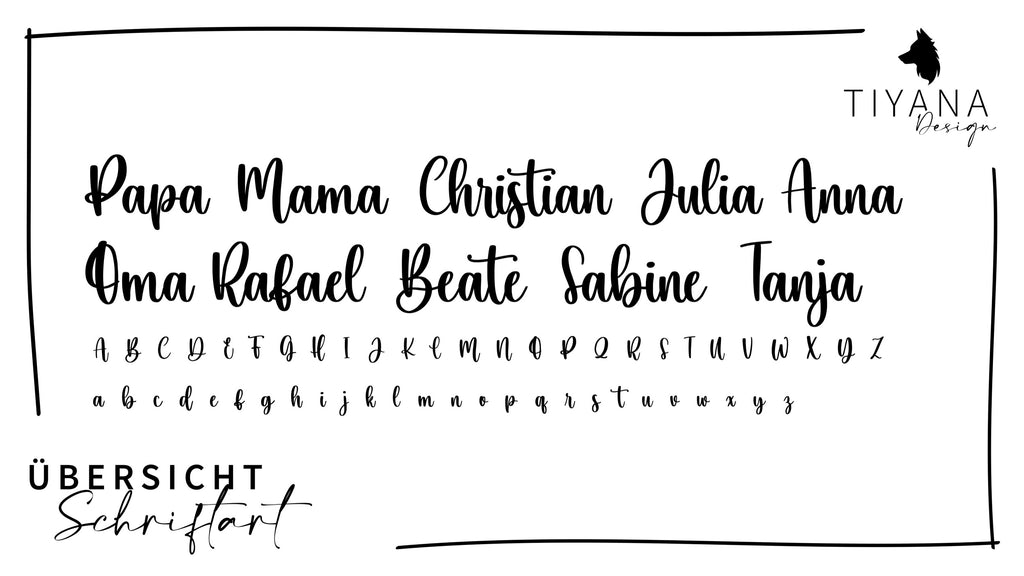 TIYANA
Design
Papa Mama Christian Julia Anna
Oma Rafael Beate Sabine Tanja
A B C D E F G H I J K L M N O P Q R S T U V W X Y Z
a b c d e f g h i j k l m n o p q r s t u v w x y z
ÜBERSICHT
Schriftart